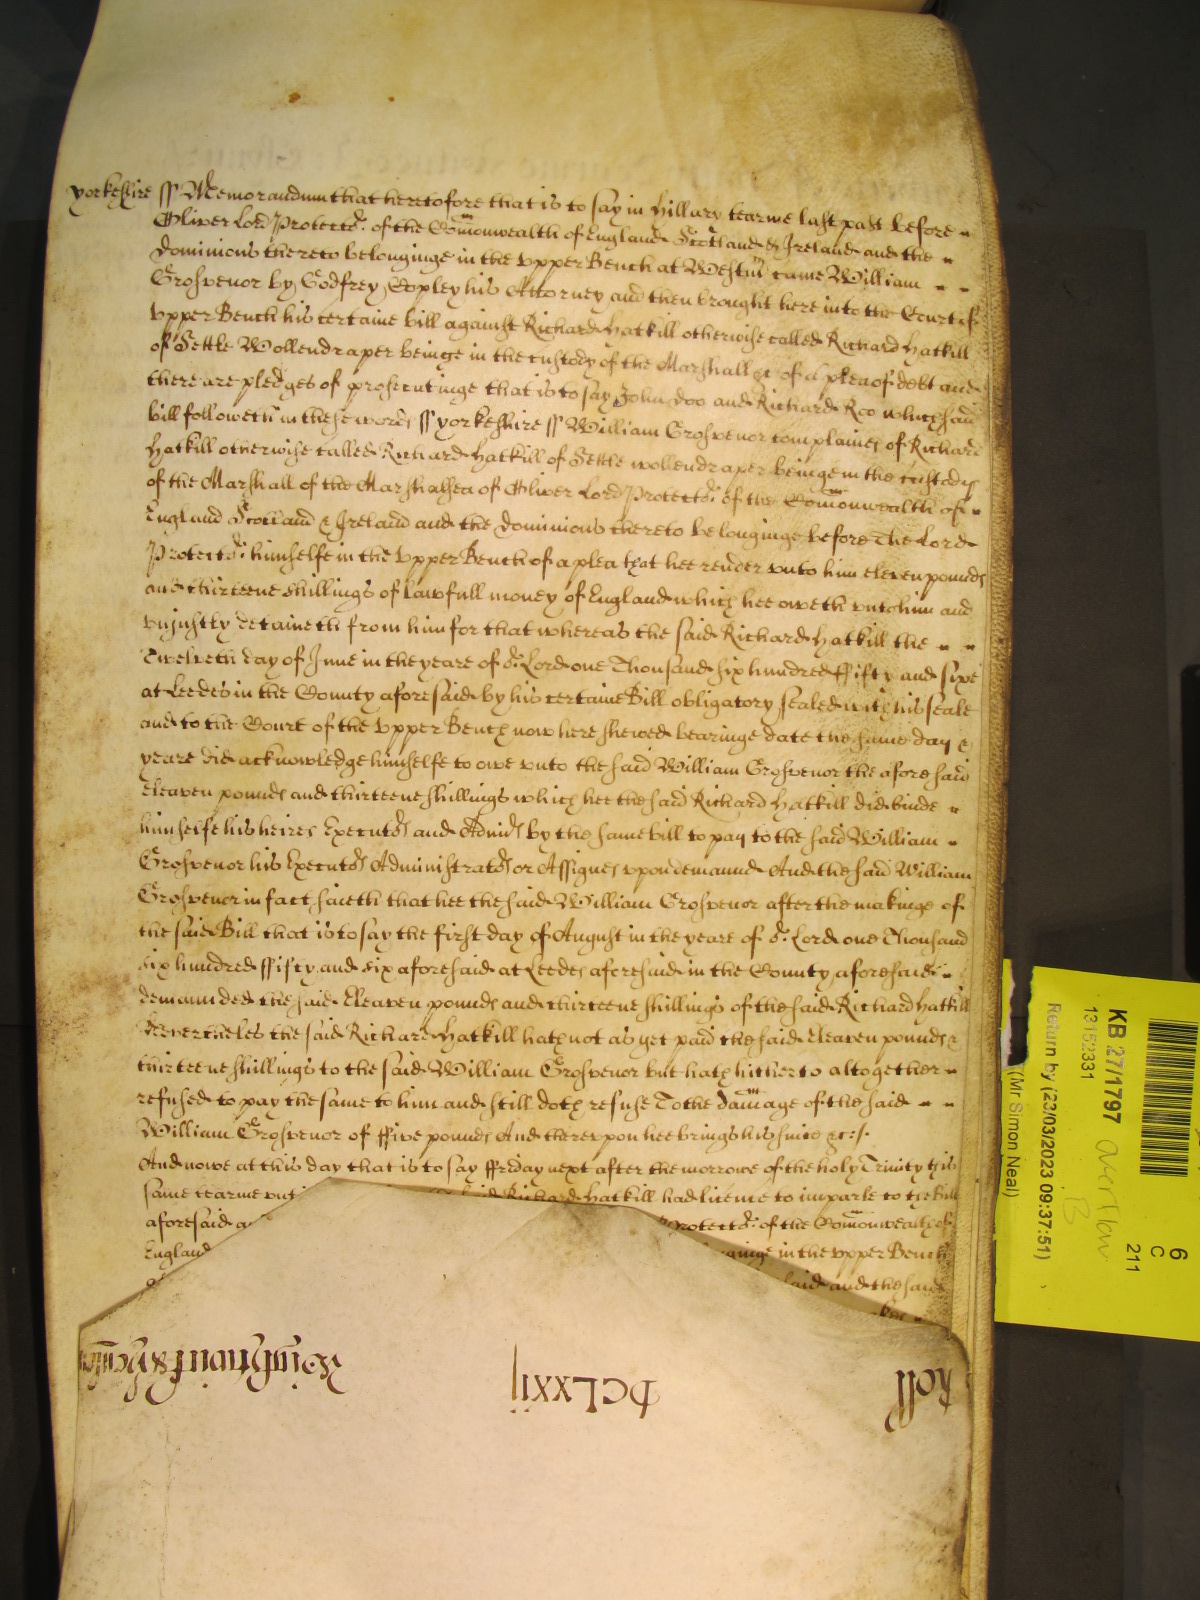 yorkeshire ss Memorandum that heretofore that is to say in Hillary tearme last past before
Oliver Lord Protector. of the Comonwealth of England Scotland & Ireland and the
dominions thereto belonginge in the vpper Bench at Westm came William
Grosvenor by Godfrey Copley his Attorney and then brought here into the Court of
vpper Bench his certaine bill against Richard Hatkill otherwise called Richard Hatkill
of Settle Wollendraper beinge in the custody of the Marshall &c of a plea of debt and
there are pledges of prosecutinge that is to say John Doo and Richard Roo which said
bill followeth in these words ss yorkeshire ss William Grosvenor complaines of Richard
Hatkill otherwise called Richard Hatkill of Settle wollendraper beinge in the custody
of the Marshall of the Marshalsea of Oliver Lord Protector. of the Comonwealth of
England Scotland & Ireland and the dominions thereto belonginge before the Lord
Protector. himselfe in the vpper Bench of a plea that hee render vnto him eleven pounds
and thirteene shillings of lawfull money of England which hee oweth vnto him and
vniustly detaineth from him for that whereas the said Richard Hatkill the
Twelveth day of June in the yeare of or. Lord one Thousand six hundred ffifty and sixe
at Leedes in the County aforesaid by his certaine Bill obligatory sealed with his seale
and to the Court of the vpper Bench now here shewed bearinge date the same day &
yeare did acknowledge himselfe to owe vnto the said William Grosvenor the aforesaid
Eleaven pounds and thirteene shillings which hee the said Richard Hatkill did binde
himselfe his heires Executors and Admids by the same bill to pay to the said William
Grosvenor his Executors Administrators or Assignes vpon demaund And the said William
Grosvenor in fact saieth that hee the said William Grosvenor after the makinge of
the said Bill that is to say the first day of August in the yeare of or. Lord one Thousand
six hundred ffifty and six aforesaid at Leedes aforesaid in the County aforesaid
demaunded the said Eleaven pounds and thirteene shillings of the said Richard Hatkill
Neverthelesse the said Richard Hatkill hath not as yet paid the said Eleaven pounds &
thirteene shillings to the said William Grosvenor but hath hitherto altogether
refused to pay the same to him and still doth refuse To the damage of the said
William Grosvenor of ffive pounds And therevpon hee brings his suite &c:/.
And nowe at this day that is to say ffriday next after the morrowe of the holy Trinity this
same tearme vnt said Richard Hatkill had licence to imparle to the bill
aforesaid a Protector. of the Comonwealth of
England ginge in the vpper Bench
said and the said
Roll DCLXXIJ
KB 27/1797
13152331
Return by (23/03/2023 09:37:51)
(Mr Simon Neal)
overflow
B
6
C
211